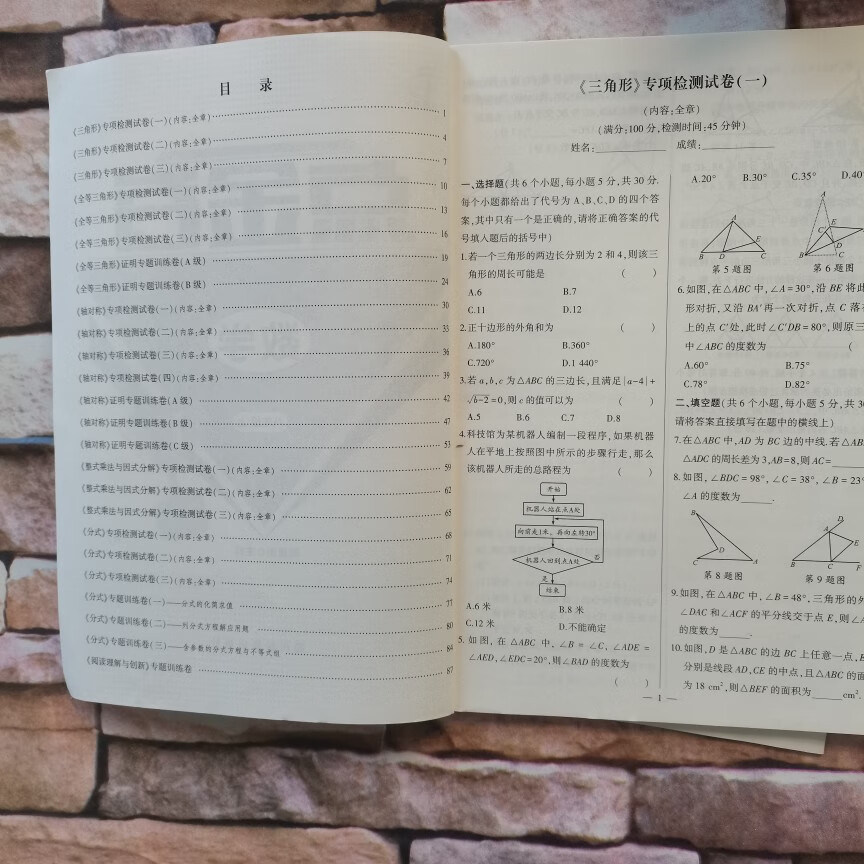 目 录
《三角形》专项检测试卷(一)(内容:全章) 1
《三角形》专项检测试卷(二)(内容:全章) 4
《三角形》专项检测试卷(三)(内容:全章) 7
《全等三角形》专项检测试卷(一)(内容:全章) 10
《全等三角形》专项检测试卷(二)(内容:全章) 13
《全等三角形》专项检测试卷(三)(内容:全章) 16
《全等三角形》证明专题训练卷(A级) 19
《全等三角形》证明专题训练卷(B级) 24
《轴对称》专项检测试卷(一)(内容:全章) 30
《轴对称》专项检测试卷(二)(内容:全章) 33
《轴对称》专项检测试卷(三)(内容:全章) 36
《轴对称》专项检测试卷(四)(内容:全章) 39
《轴对称》证明专题训练卷(A级) 42
《轴对称》证明专题训练卷(B级) 47
《轴对称》证明专题训练卷(C级) 53
《整式乘法与因式分解》专项检测试卷(一)(内容:全章) 59
《整式乘法与因式分解》专项检测试卷(二)(内容:全章) 62
《整式乘法与因式分解》专项检测试卷(三)(内容:全章) 65
《分式》专项检测试卷(一)(内容:全章) 68
《分式》专项检测试卷(二)(内容:全章) 71
《分式》专项检测试卷(三)(内容:全章) 74
《分式》专题训练卷(一)——分式的化简求值 77
《分式》专题训练卷(二)——列分式方程解应用题 80
《分式》专题训练卷(三)——含参数的分式方程与不等式组 84
《阅读理解与创新》专题训练卷 87
《三角形》专项检测试卷(一)
(内容:全章)
(满分:100分,检测时间:45分钟)
姓名:________ 成绩:________
一、选择题(共6个小题,每小题5分,共30分.
每个小题都给出了代号为A、B、C、D的四个答
案,其中只有一个是正确的,请将正确答案的代
号填入题后的括号中)
1.若一个三角形的两边长分别为2和4,则该三
角形的周长可能是 ( )
A.6 B.7
C.11 D.12
2.正十边形的外角和为 ( )
A.180° B.360°
C.720° D.1 440°
3.若a,b,c为△ABC的三边长,且满足|a-4|+
√b-2=0,则c的值可以为 ( )
A.5 B.6 C.7 D.8
4.科技馆为某机器人编制一段程序,如果机器
人在平地上按照图中所示的步骤行走,那么
该机器人所走的总路程为 ( )
开始
机器人站在点A处
向前走1米,再向左转30°
机器人回到点A处
否
是
结束
A.6米 B.8米
C.12米 D.不能确定
5.如图,在△ABC中,∠B=∠C,∠ADE=
∠AED,∠EDC=20°,则∠BAD的度数为
( )
— 1 —
A.20° B.30° C.35° D.40
A
E
B D C
第5题图
A
E
C'
D
B C
第6题图
6.如图,在△ABC中,∠A=30°,沿BE将此
形对折,又沿BA'再一次对折,点C落
上的点C'处,此时∠C'DB=80°,则原三
中∠ABC的度数为 (
A.60° B.75°
C.78° D.82°
二、填空题(共6个小题,每小题5分,共3
请将答案直接填写在题中的横线上)
7.在△ABC中,AD为BC边的中线.若△AB
△ADC的周长差为3,AB=8,则AC=____
8.如图,∠BDC=98°,∠C=38°,∠B=23°
∠A的度数为____.
B
D
C A
第8题图
D
A
E
B C F
第9题图
9.如图,在△ABC中,∠B=48°,三角形的外
∠DAC和∠ACF的平分线交于点E,则∠A
的度数为____.
10.如图,D是△ABC的边BC上任意一点,E
分别是线段AD,CE的中点,且△ABC的面
为18 cm²,则△BEF的面积为____cm².